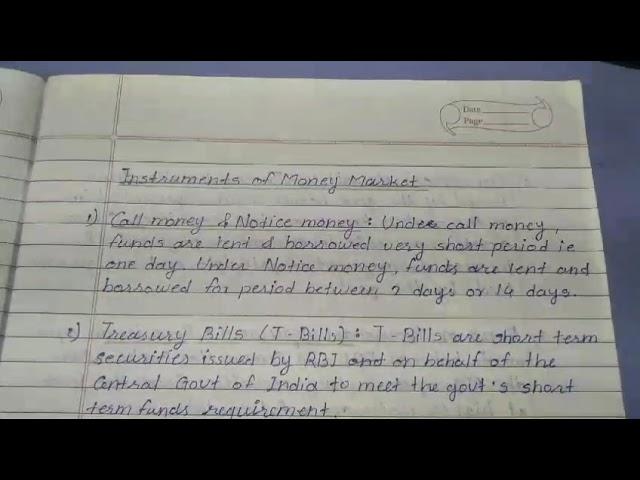 Date
Page
Instruments of Money Market
1) Call money & Notice money : Under call money,
funds are lent & borrowed very short period ie
one day. Under Notice money, funds are lent and
borrowed for period between 2 days or 14 days.
2) Treasury Bills (T-Bills) : T-Bills are short term
securities issued by RBI and on behalf of the
Central Govt of India to meet the govt's short
term funds requirement.